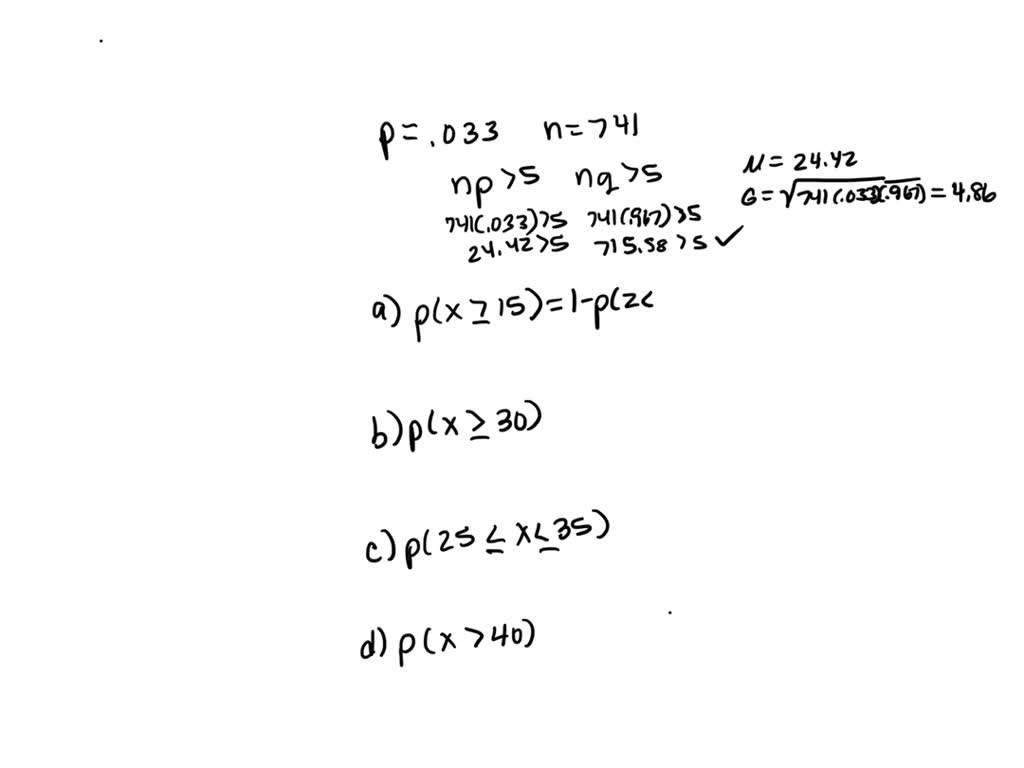 p = .033 n = 741
np > 5 nq > 5
741(.033) > 5 741(.967) > 5
24.42 > 5 715.58 > 5 ✓
μ = 24.42
σ = √741(.033)(.967) = 4.86
a) p(x ≥ 15) = 1 - p(z <
b) p(x ≥ 30)
c) p(25 ≤ x ≤ 35)
d) p(x > 40)